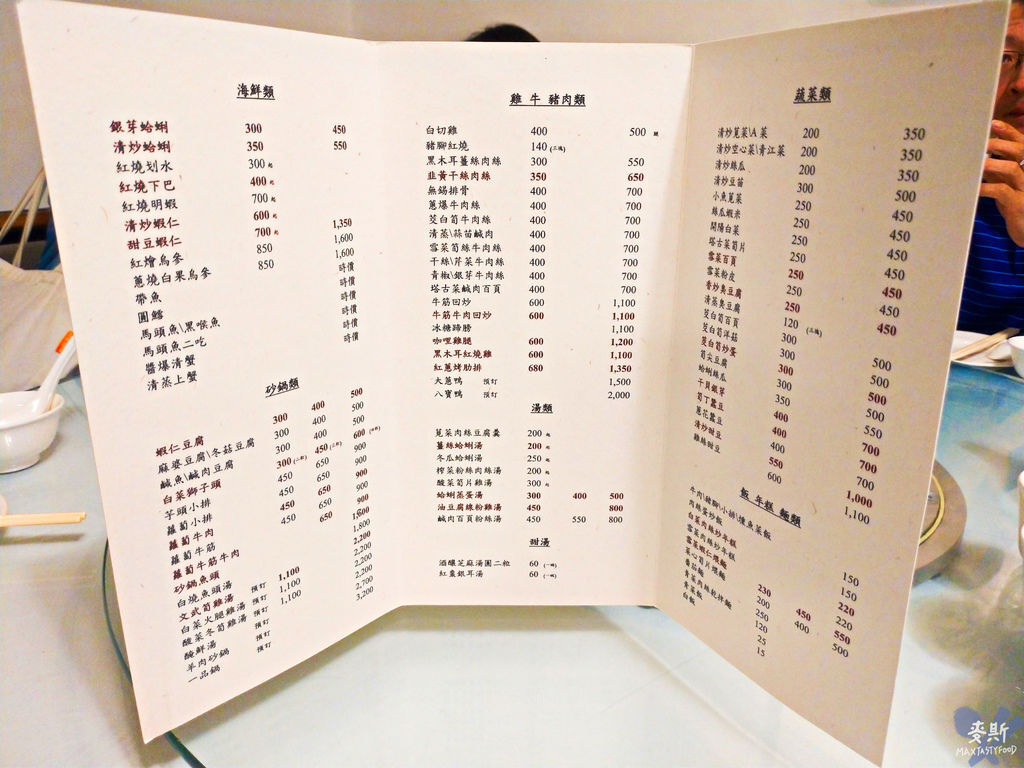 海鮮類
銀芽蛤蜊 300 450
清炒蛤蜊 350 550
紅燒划水 300起
紅燒下巴 400起
紅燒明蝦 700起
清炒蝦仁 600起
甜豆蝦仁 700起 1,350
紅燴烏參 850 1,600
蔥燒白果烏參 850 1,600
帶魚 時價
圓鱈 時價
馬頭魚\黑喉魚 時價
馬頭魚二吃 時價
醬爆清蟹 時價
清蒸上蟹 時價
砂鍋類
蝦仁豆腐 300 400 500
麻婆豆腐\冬菇豆腐 300 400 500
鹹魚\鹹肉豆腐 300 400 500
白菜獅子頭 300 450 600
芋頭小排 450 650 900
蘿蔔小排 450 650 900
蘿蔔牛肉 450 650 900
蘿蔔牛筋 450 650 900
蘿蔔牛筋牛肉
砂鍋魚頭
白燒魚頭湯 預訂
文武筍雞湯 預訂
白菜火腿雞湯 預訂
酸菜冬筍雞湯 預訂
醃鮮湯
羊肉砂鍋 預訂
一品鍋 預訂
1,100
1,100
1,100
1,600
1,800
2,200
2,200
2,200
2,200
2,700
3,200
雞 牛 豬肉類
白切雞 400 500
豬腳紅燒 140
黑木耳薑絲肉絲 300 550
韭黃干絲肉絲 350 650
無錫排骨 400 700
蔥爆牛肉絲 400 700
茭白筍牛肉絲 400 700
清蒸\蒜苗鹹肉 400 700
雪菜筍絲牛肉絲 400 700
干絲\芹菜牛肉絲 400 700
青椒\銀芽牛肉絲 400 700
塔古菜鹹肉百頁 400 700
牛筋回炒 600 1,100
牛筋牛肉回炒 600 1,100
冰糖蹄膀 1,100
咖哩雞腿 600 1,200
黑木耳紅燒雞 600 1,100
紅蔥烤肋排 680 1,350
大蔥鴨 預訂 1,500
八寶鴨 預訂 2,000
湯類
莧菜肉絲豆腐羹 200起
薑絲蛤蜊湯 200起
冬瓜蛤蜊湯 250起
榨菜粉絲肉絲湯 200起
酸菜筍片雞湯 300起
蛤蜊蒸蛋湯 300 400 500
油豆腐線粉雞湯 450 800
鹹肉百頁粉絲湯 450 550 800
甜湯
酒釀芝麻湯圓二粒 60(一碗)
紅棗銀耳湯 60(一碗)
蔬菜類
清炒莧菜\A菜 200 350
清炒空心菜\青江菜 200 350
清炒絲瓜 200 350
清炒豆苗 300 500
小魚莧菜 250 450
絲瓜蝦米 250 450
開陽白菜 250 450
塔古菜筍片 250 450
雪菜百頁 250 450
雪菜粉皮 250 450
香炒臭豆腐 250
清蒸臭豆腐 120
茭白筍百頁 300 500
茭白筍洋菇 300 500
茭白筍炒蛋 300 500
筍尖豆腐 300 500
蛤蜊絲瓜 350 550
干貝銀芽 400 700
筍丁蠶豆 400 700
蔥花蠶豆 400 700
清炒甜豆 550 1,000
雞絲甜豆 600 1,100
飯 年糕 麵類
牛肉\豬腳\小排\燻魚菜飯 150
肉絲蛋炒飯 150
白菜肉絲炒年糕 220
雪菜肉絲炒年糕 220
雪菜蝦仁煨麵
菜心筍片煨麵
番茄麵
雪菜肉絲乾拌麵
青菜飯
白飯
230 450 550
200 400 500
250
120
25
15
麥斯
MAXTASTYFOOD